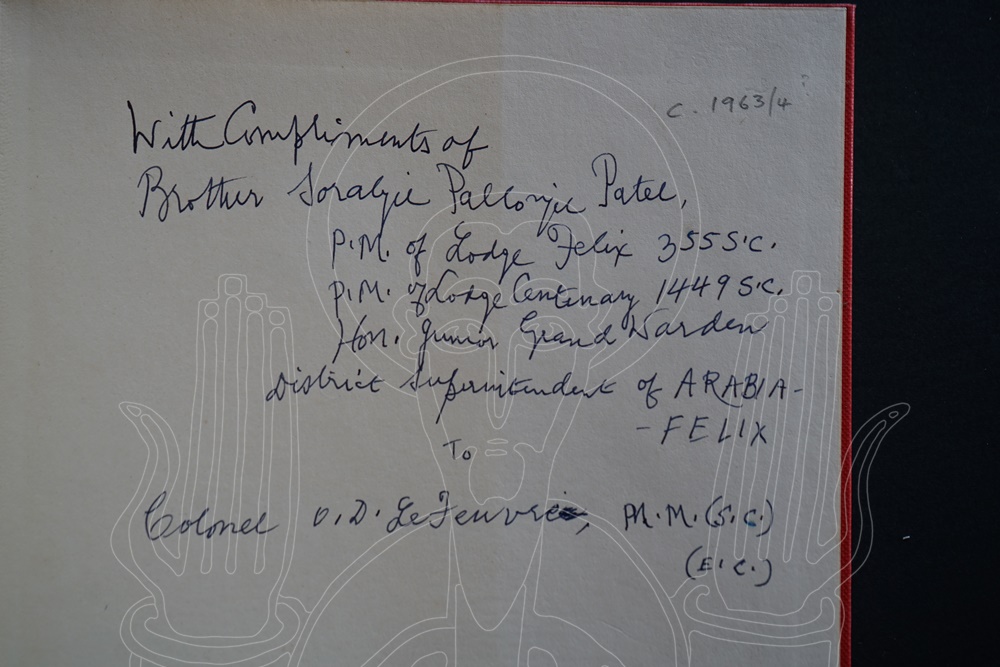 c. 1963/4 ?
With Compliments of
Brother Sorabjee Pallonjee Patel,
P.M. of Lodge Felix 355 S.C.
P.M. of Lodge Centenary 1449 S.C.
Hon. Junior Grand Warden
District Superintendent of ARABIA-
-FELIX
To
Colonel O.D. LeFeuvre, M.M. (S.C.)
(E.C.)